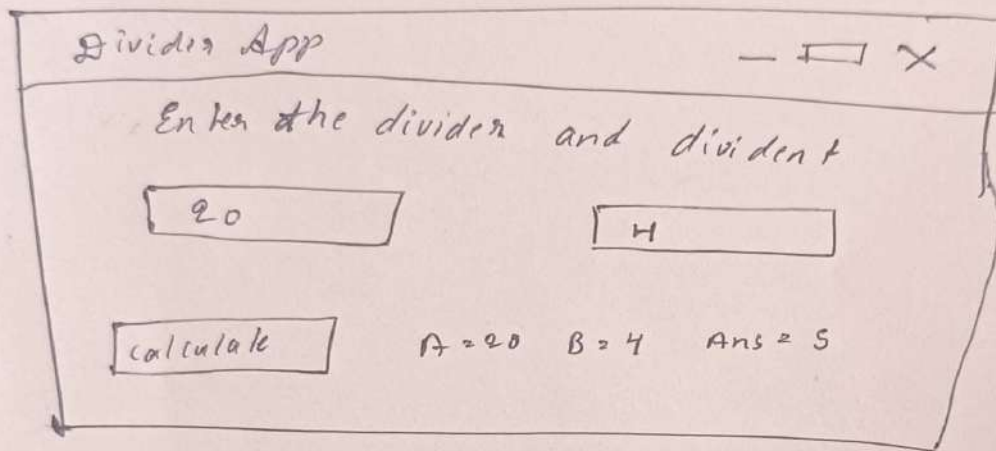 Divider App
Enter the divider and divident
20 4
calculate A = 20 B = 4 Ans = 5